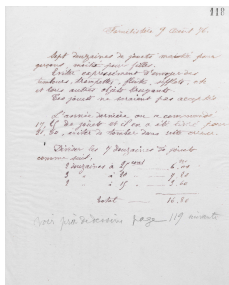 118
Familistère 9 Août 96
Sept douzaines de jouets moitié pour
garçons, moitié pour filles.
Eviter expressément d'envoyer des
tambours, trompettes, flûtes, sifflets, etc
et tous autres objets bruyants.
Ces jouets ne seraient pas acceptés
L'année dernière, on a commandé
de jouets et il en a été livré pour
éviter de tomber dans cette erreur.
Diviser les 7 douzaines de jouets
comme suit:
2 douzaines à
3 " à
2 " à
Total
Voir prix de devoirs page 119 suivante